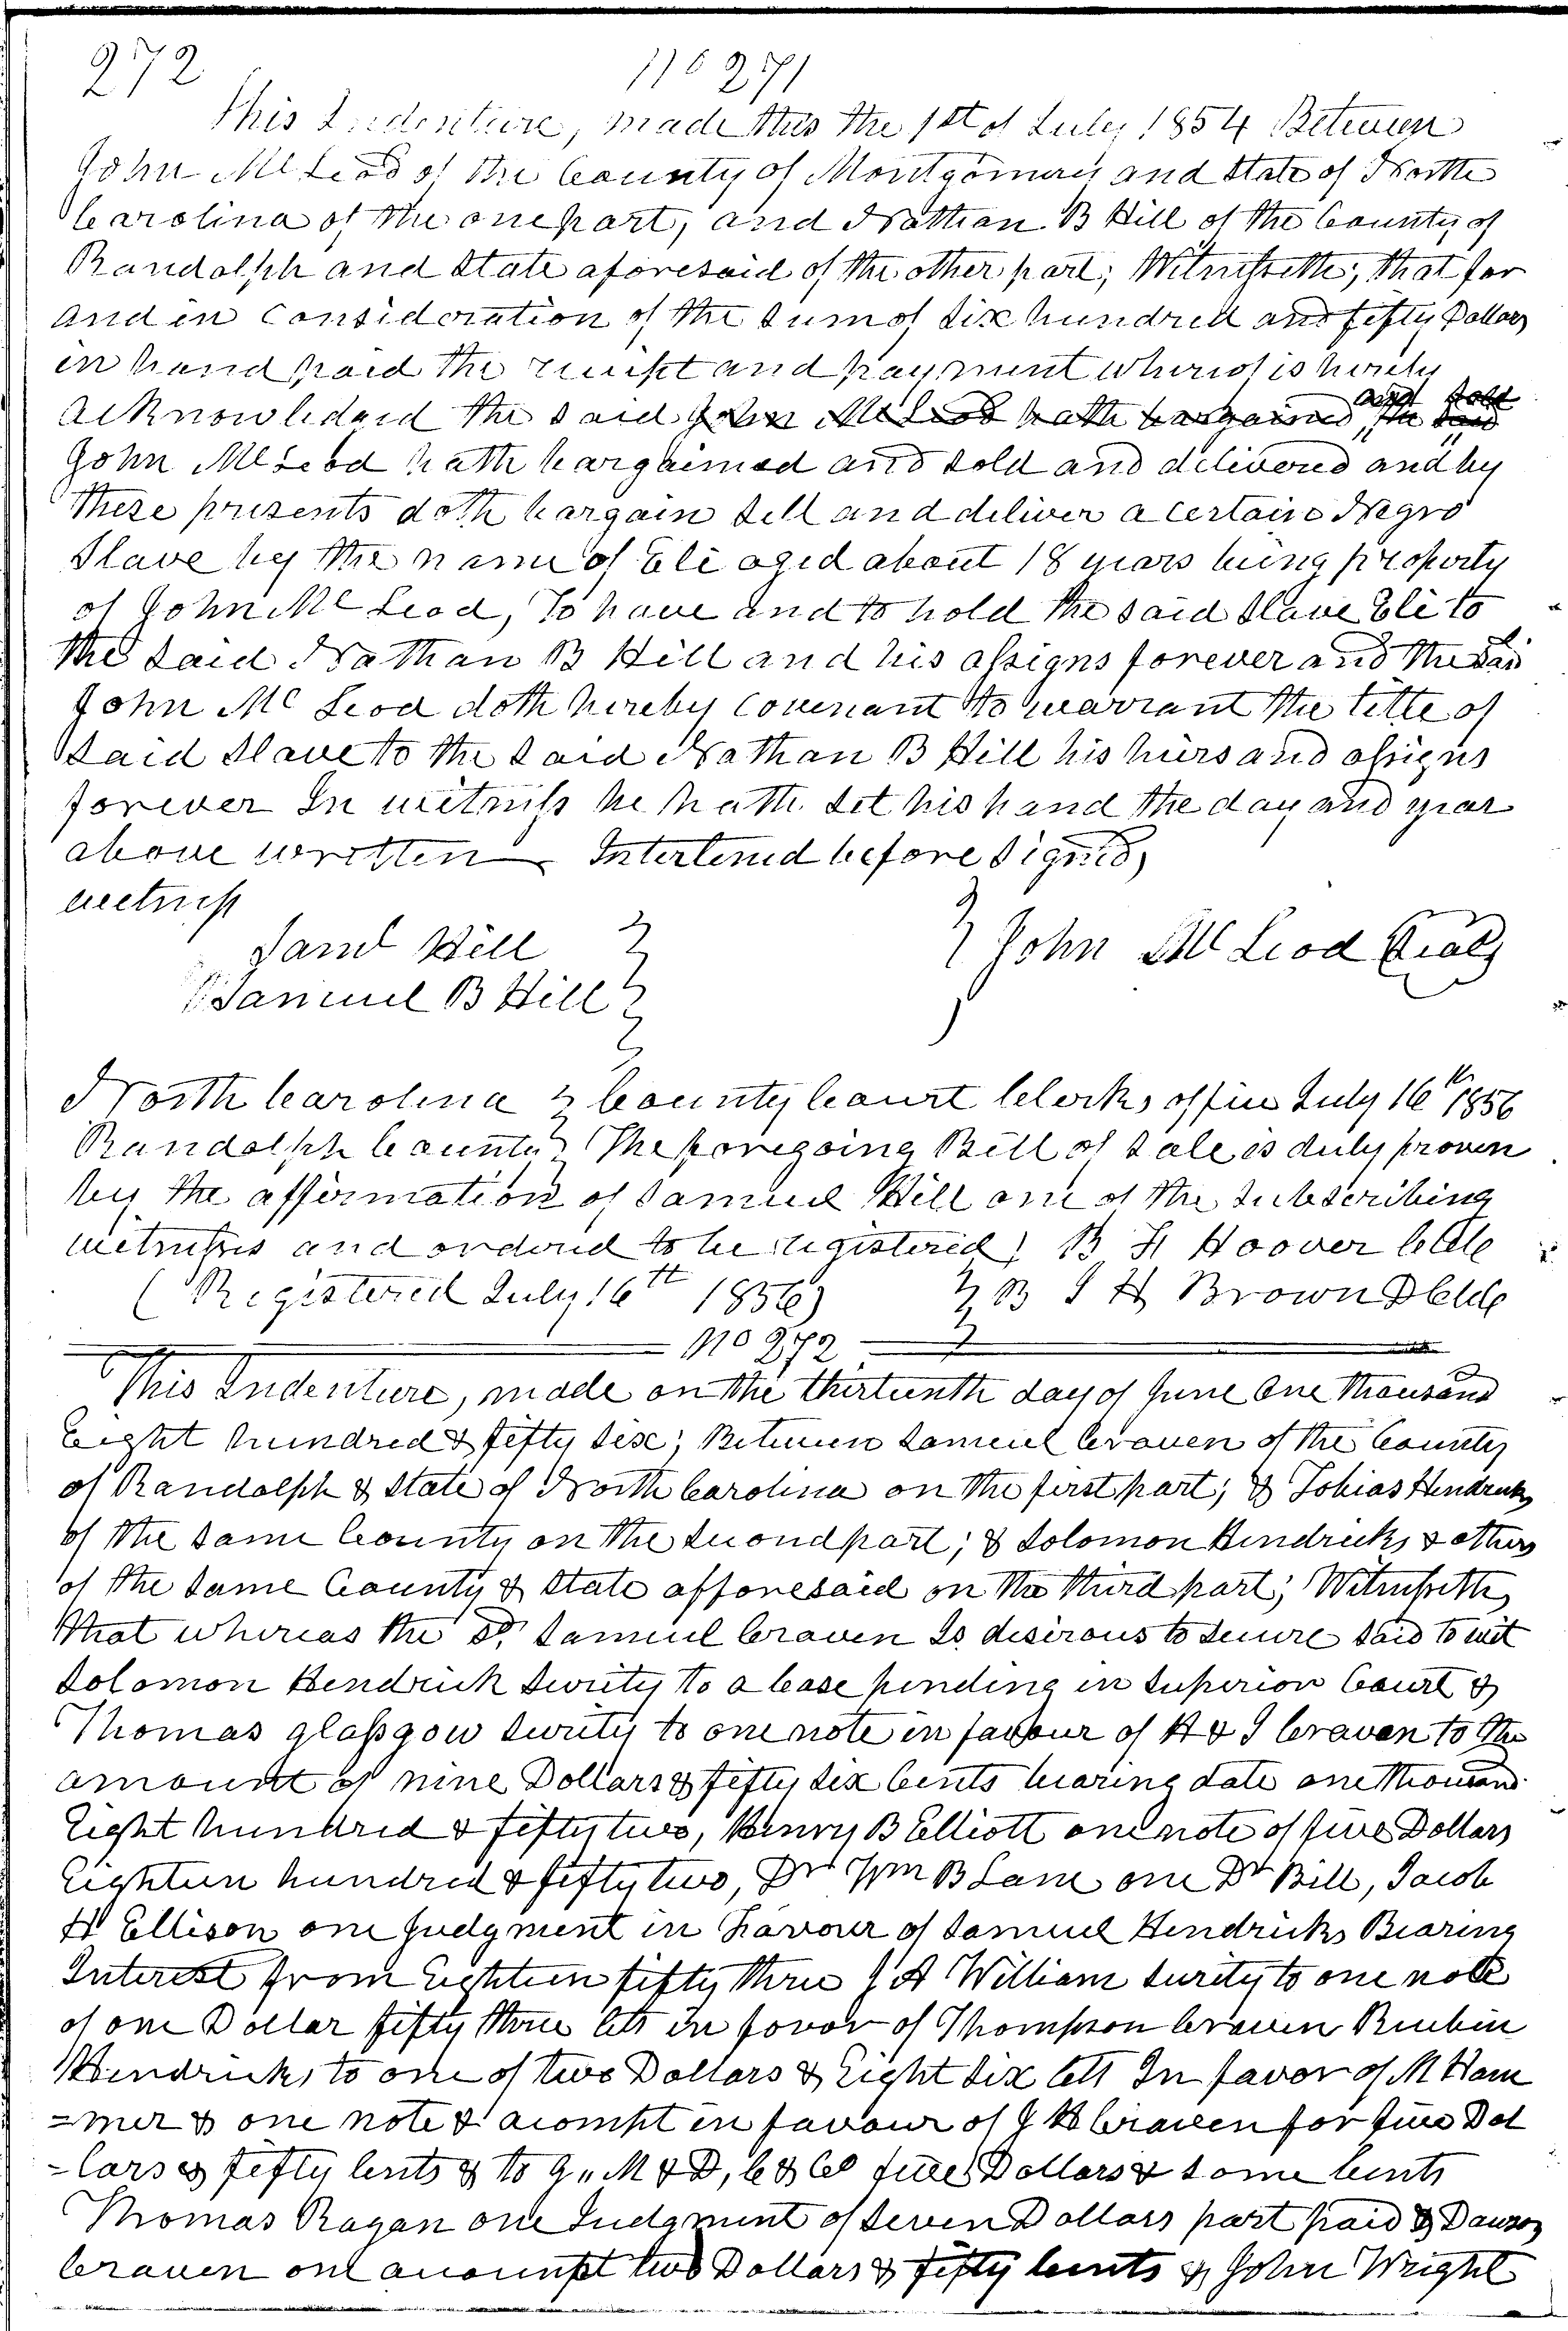 272 No 271
This Indenture, made this the 1st of July 1854 Between
John McLeod of the County of Montgomery and State of North
Carolina of the one part, and Nathan B Hill of the County of
Randolph and State aforesaid of the other part; Witnesseth; that for
and in Consideration of the sum of six hundred and fifty Dollars
in hand paid the receipt and payment whereof is hereby
acknowledged the said John McLeod hath bargained and sold the said
John McLeod hath bargained and sold and delivered and by
these presents doth bargain sell and deliver a certain Negro
Slave by the name of Eli aged about 18 years being property
of John McLeod, To have and to hold the said slave Eli to
the said Nathan B Hill and his assigns forever and the said
John McLeod doth hereby covenant to warrant the title of
said slave to the said Nathan B Hill his heirs and assigns
forever In witness he hath set his hand the day and year
above written Interlined before signed,
witness
Saml Hill } } John McLeod (Seal)
Samuel B Hill }
North Carolina } County Court Clerks office July 16th 1856
Randolph County } The foregoing Bill of sale is duly proven
by the affirmation of Samuel Hill one of the subscribing
witnesses and ordered to be registered } B F Hoover CCC
(Registered July 16th 1856) } B J H Brown DClk
No 272
This Indenture, made on the thirteenth day of June One thousand
Eight hundred & fifty six; Between Samuel Craven of the County
of Randolph & State of North Carolina on the first part; & Tobias Hendricks
of the same County on the second part; & Solomon Hendricks & others
of the same County & State afforesaid on the third part; Witnesseth
that whereas the sd. Samuel Craven Is desirous to secure said to wit
Solomon Hendrick surity to a Case pending in Superior Court &
Thomas glassgow surity to one note in favour of H & J Craven to the
amount of nine Dollars & fifty six Cents bearing date one thousand
Eight hundred & fifty two, Henry B Elliott one note of five Dollars
Eighteen hundred & fifty two, Dr Wm B Lane one Dr Bill, Jacob
H Ellison one Judgment in Favour of Samuel Hendricks Bearing
Interest from Eighteen fifty three J A William surity to one note
of one Dollar fifty three cts in favor of Thompson Craven Reubin
Hendricks to one of two Dollars & Eight six cts In favor of M Ham
=mer & one note & acompt in favour of J H Craven for five Dol
-lars & fifty Cents & to G,, M & D, C & Co five Dollars & some Cents
Thomas Ragan one Judgment of seven Dollars part paid & Dawson
Craven one acounpt two Dollars & fifty cents & John Wright